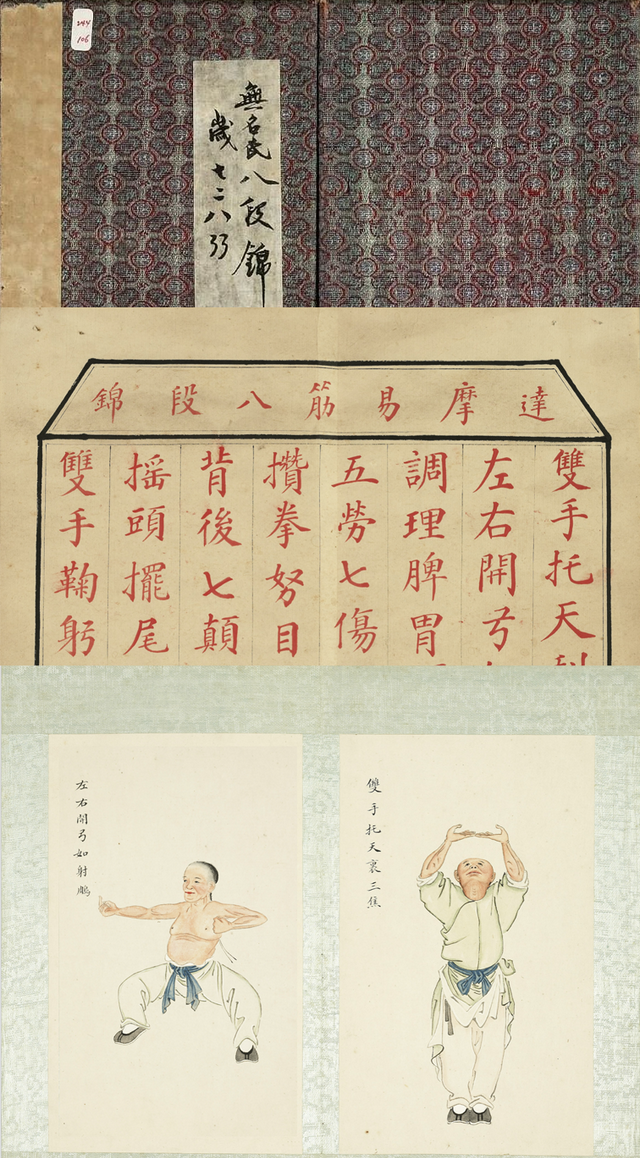 244
106
無名氏八段錦
歲七二八
達摩易筋八段錦
雙手托天
左右開弓
調理脾胃
五勞七傷
攢拳努目
背後七顛
搖頭擺尾
雙手鞠躬
雙手托天裏三焦
左右開弓如射鵰